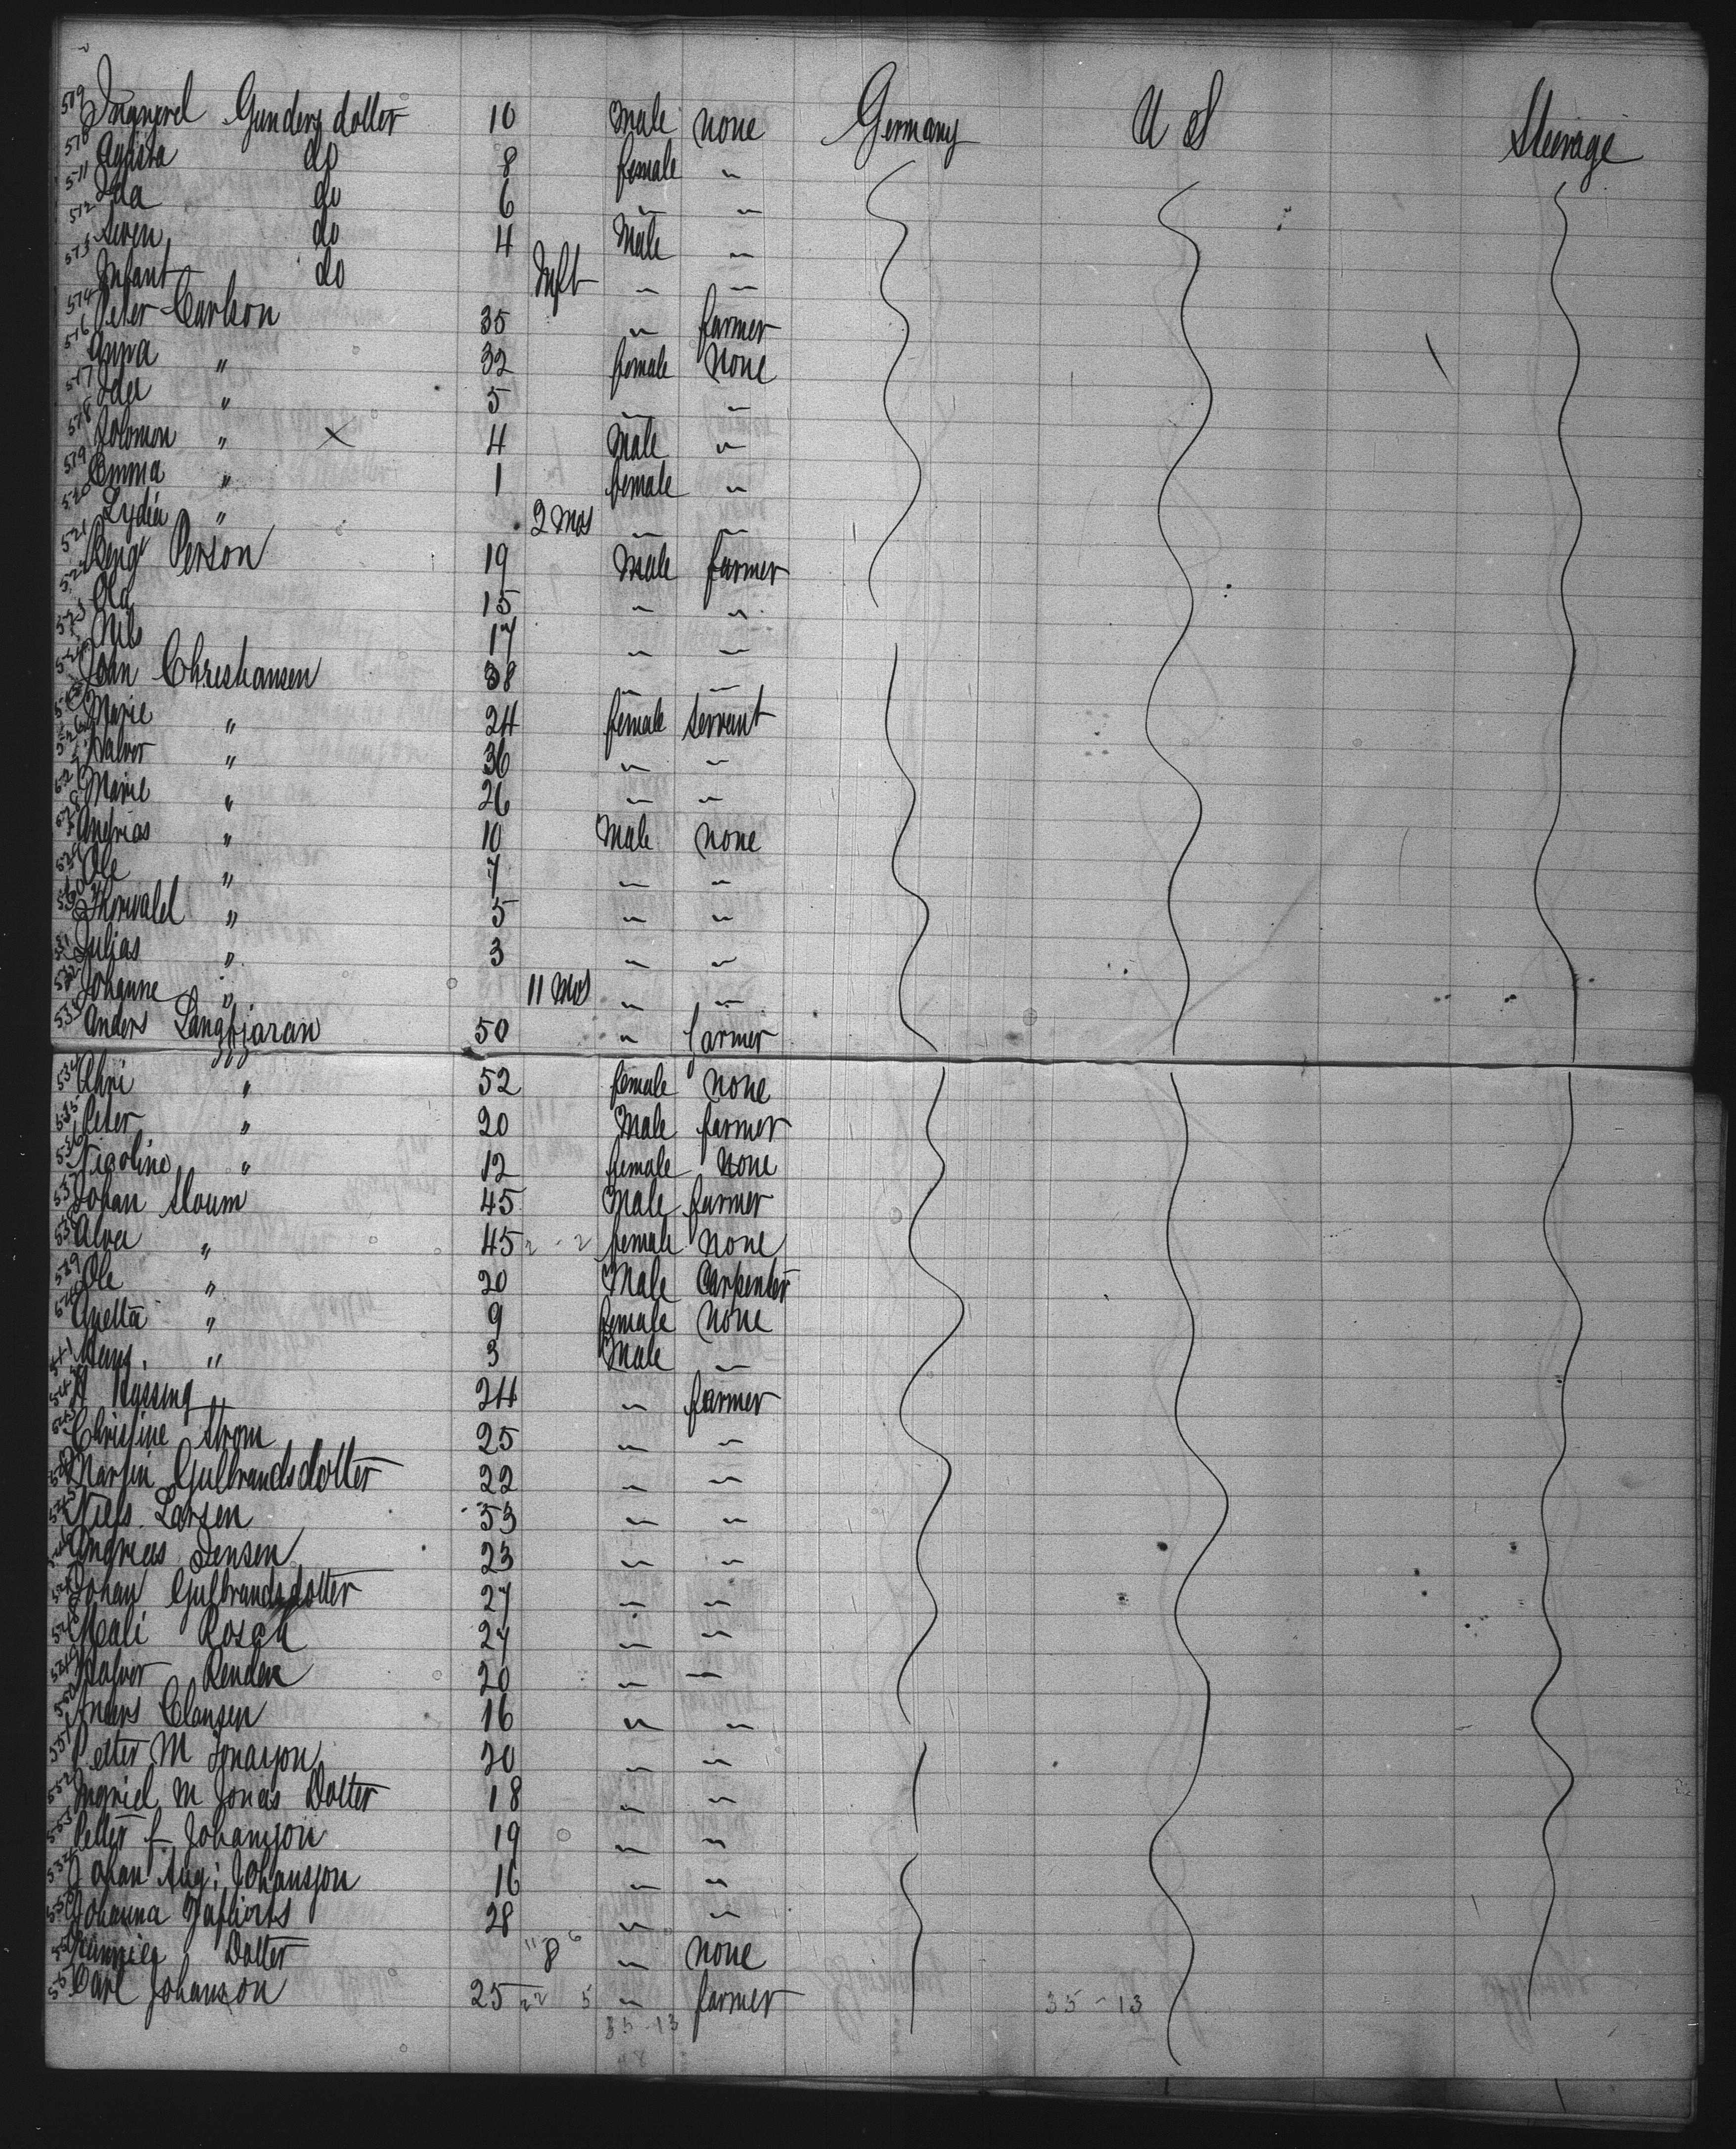 Gunders dotter 10 Male none Germany U S Steerage
511 Agusta do 8 female "
512 Ida do 6 " "
Seven do 4 Male "
Infant do Inft " "
Peter Carlson 35 " farmer
516 Anna " 32 female None
517 Ida " 5 " "
518 Solomon " 4 Male "
519 Emma " 1 female "
520 Lydia " 2 Mos " "
521 Beng Person 19 Male farmer
522 Ola 15 " "
523 Nils 17 " "
John Christiansen 38 " "
Marie " 24 female Servant
Halvor " 36 " "
Marie " 26 " "
Andrias " 10 Male none
529 Ole " 7 " "
530 Thorvald " 5 " "
531 Julias " 3 " "
532 Johanne " 11 Mos " "
533 Anders 50 " farmer
534 " 52 female none
535 Peter " 20 Male farmer
536 Nicoline " 12 female None
537 Johan Sloum 45 Male farmer
538 Alva " 45 female None
539 Ole " 20 Male Carpenter
540 Anetta " 9 female None
541 Hans " 3 Male "
24 " farmer
543 Christine Strom 25 " "
Martin Gulbrandsdotter 22 " "
545 Niels Larsen 53 " "
Andreas Jensen 23 " "
547 Johan Gulbrandsdotter 27 " "
548 27 " "
549 Halvor 20 " "
550 Anders Clausen 16 " "
551 Petter M Jonasson 20 " "
552 M Jonas Dotter 18 " "
553 Petter Johansson 19 " "
554 Johan Aug: Johansson 16 " "
555 Johanna 28 " "
556 Dotter 8 " none
557 Carl Johanson 25 " farmer
35-13 35-13